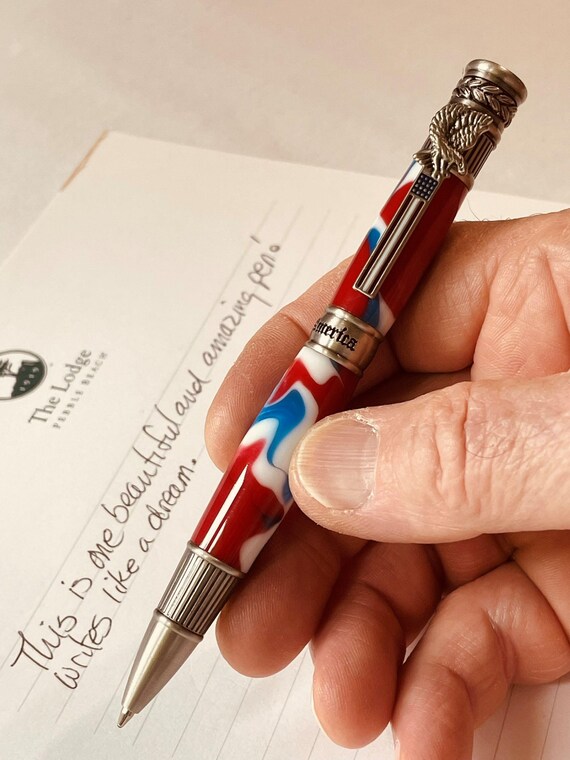 The Lodge
PEBBLE BEACH
1919
This is one beautiful and amazing pen!
writes like a dream.
America